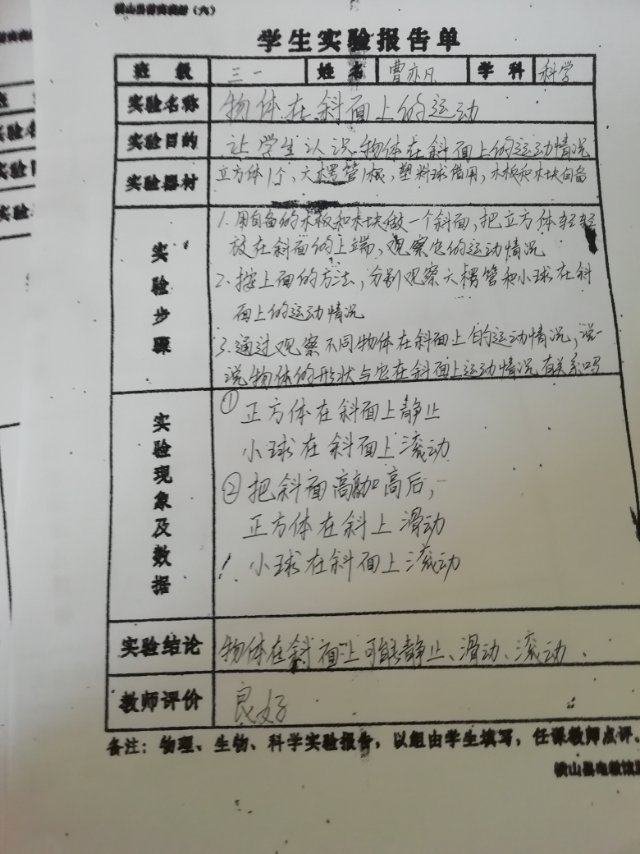 学生实验报告单
班级 三一 姓名 曹亦凡 学科 科学
实验名称 物体在斜面上的运动
实验目的 让学生认识物体在斜面上的运动情况
实验器材 立方体1个,六棱管1根,塑料球借用,木板和木块自备
实验步骤
1.用自备的木板和木块做一个斜面,把立方体轻轻
放在斜面的上端,观察它的运动情况
2、按上面的方法,分别观察六棱管和小球在斜
面上的运动情况
3.通过观察不同物体在斜面上的运动情况,说一
说物体的形状与它在斜面上运动情况有关系吗
实验现象及数据
① 正方体在斜面上静止
小球在斜面上滚动
② 把斜面高加高后,
正方体在斜上滑动
小球在斜面上滚动
实验结论 物体在斜面上可能静止、滑动、滚动.
教师评价 良好
备注:物理、生物、科学实验报告,以组由学生填写,任课教师点评。